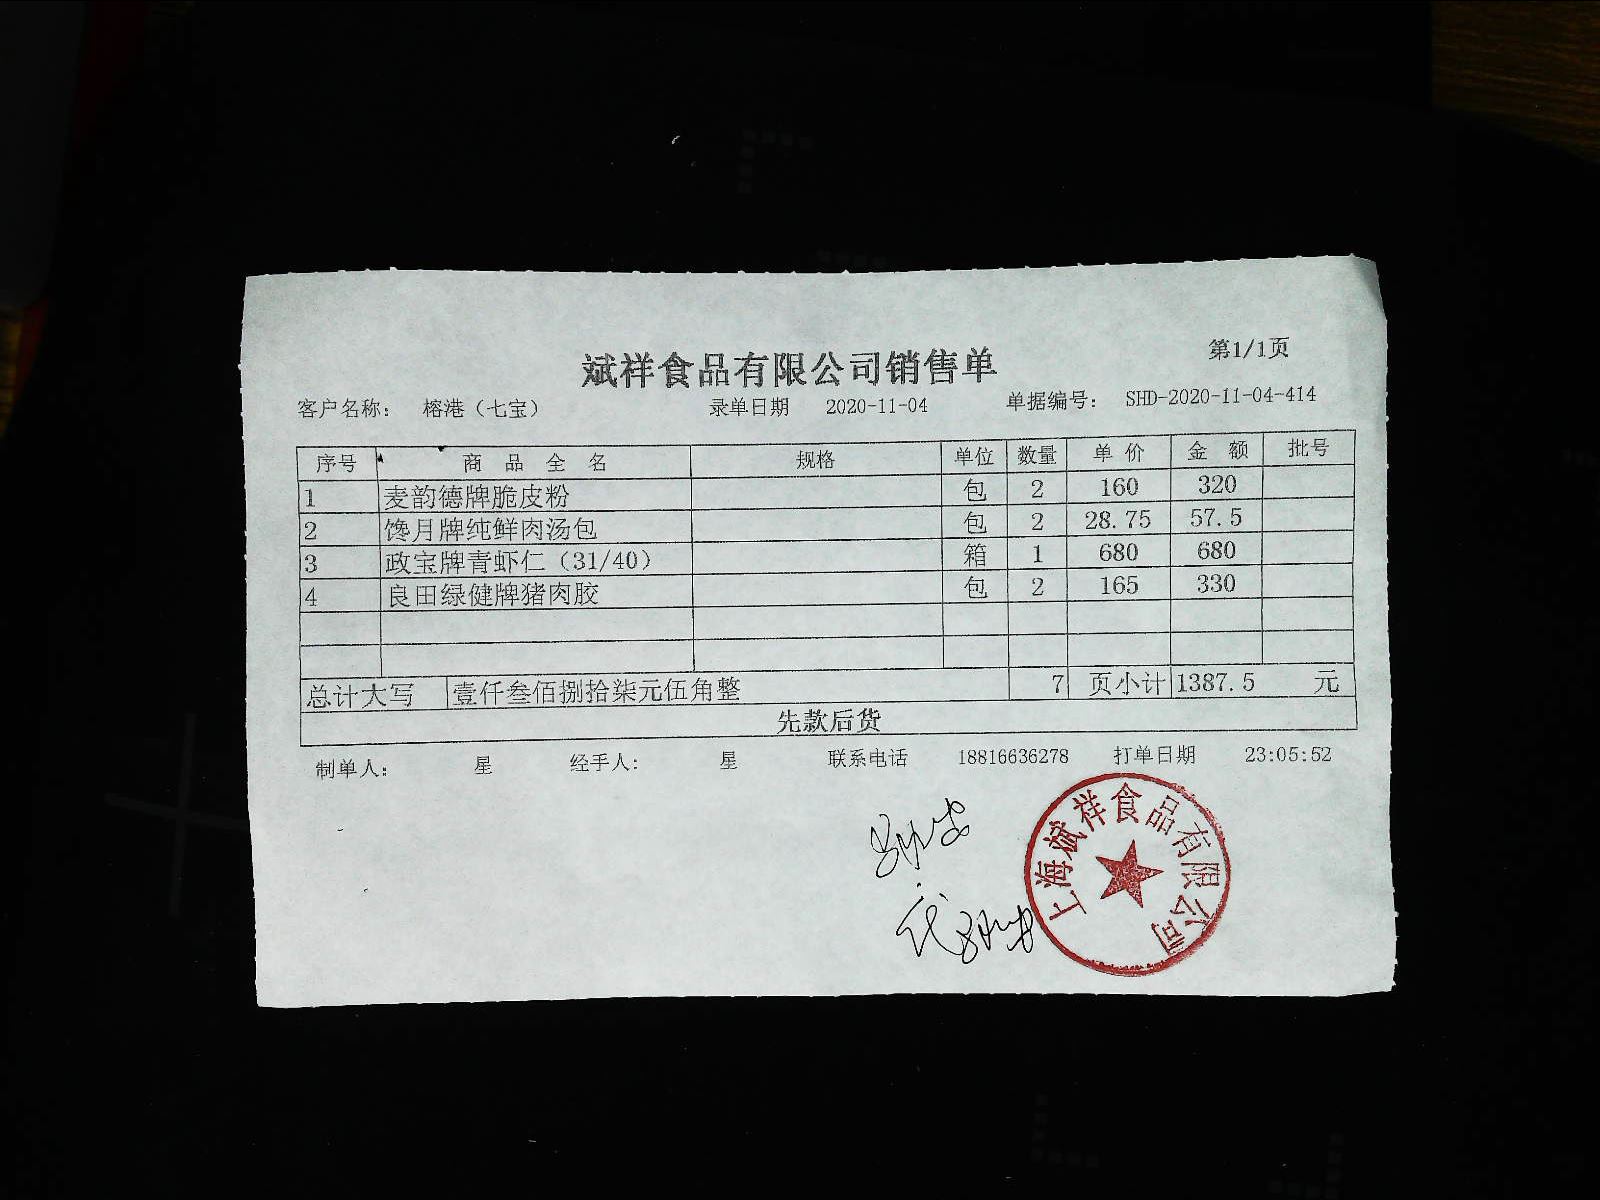 第1/1页
斌祥食品有限公司销售单
客户名称： 榕港（七宝） 录单日期 2020-11-04 单据编号： SHD-2020-11-04-414
序号 商 品 全 名 规格 单位 数量 单 价 金 额 批号
1 麦韵德牌脆皮粉 包 2 160 320
2 馋月牌纯鲜肉汤包 包 2 28.75 57.5
3 政宝牌青虾仁（31/40） 箱 1 680 680
4 良田绿健牌猪肉胶 包 2 165 330
总计大写 壹仟叁佰捌拾柒元伍角整 7 页小计 1387.5 元
先款后货
制单人： 星 经手人： 星 联系电话 18816636278 打单日期 23:05:52
上海斌祥食品有限公司